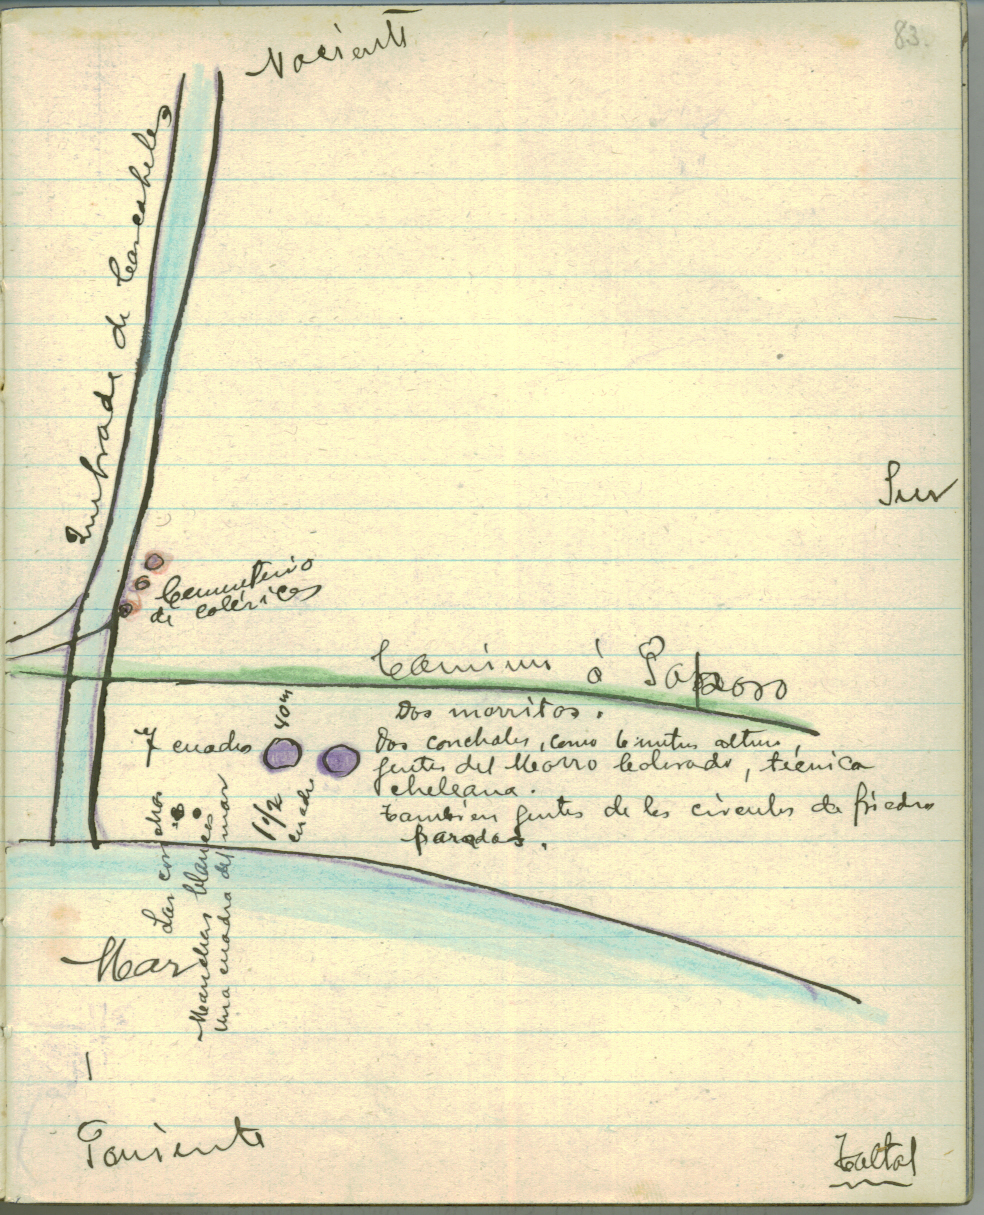 83.
Naciente
Quebrada de Cascabeles
Sur
Cementerio
de coléricos
Camino á Paposo
40 m
Dos morritos.
7 cuadras
Dos conchales, como 6 metros altura,
gentes del Morro Colorado, técnica
chelleana.
También gentes de los círculos de piedra
paradas.
1 1/2
cuadra
Las conchas
Manchas blancas
Una cuadra del mar
Mar
Poniente
Taltal